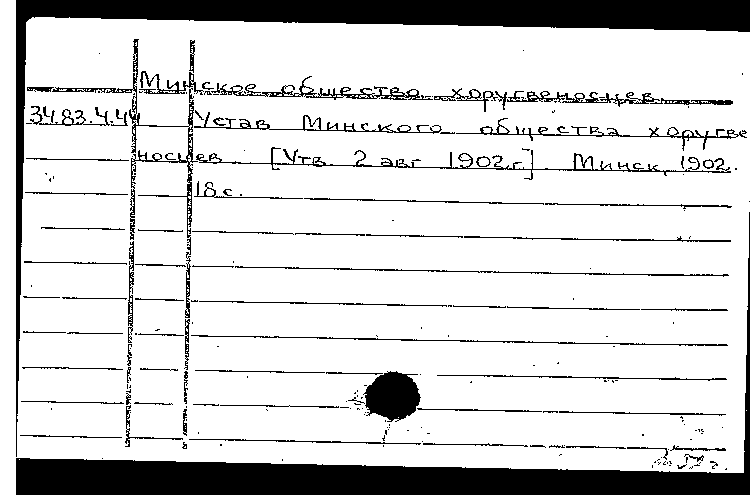 Минское общество хоругвеносцев.
34.83.4.44 Устав Минского общества хоругве
носцев [Утв. 2 авг 1902 г.] Минск, 1902.
18 с.